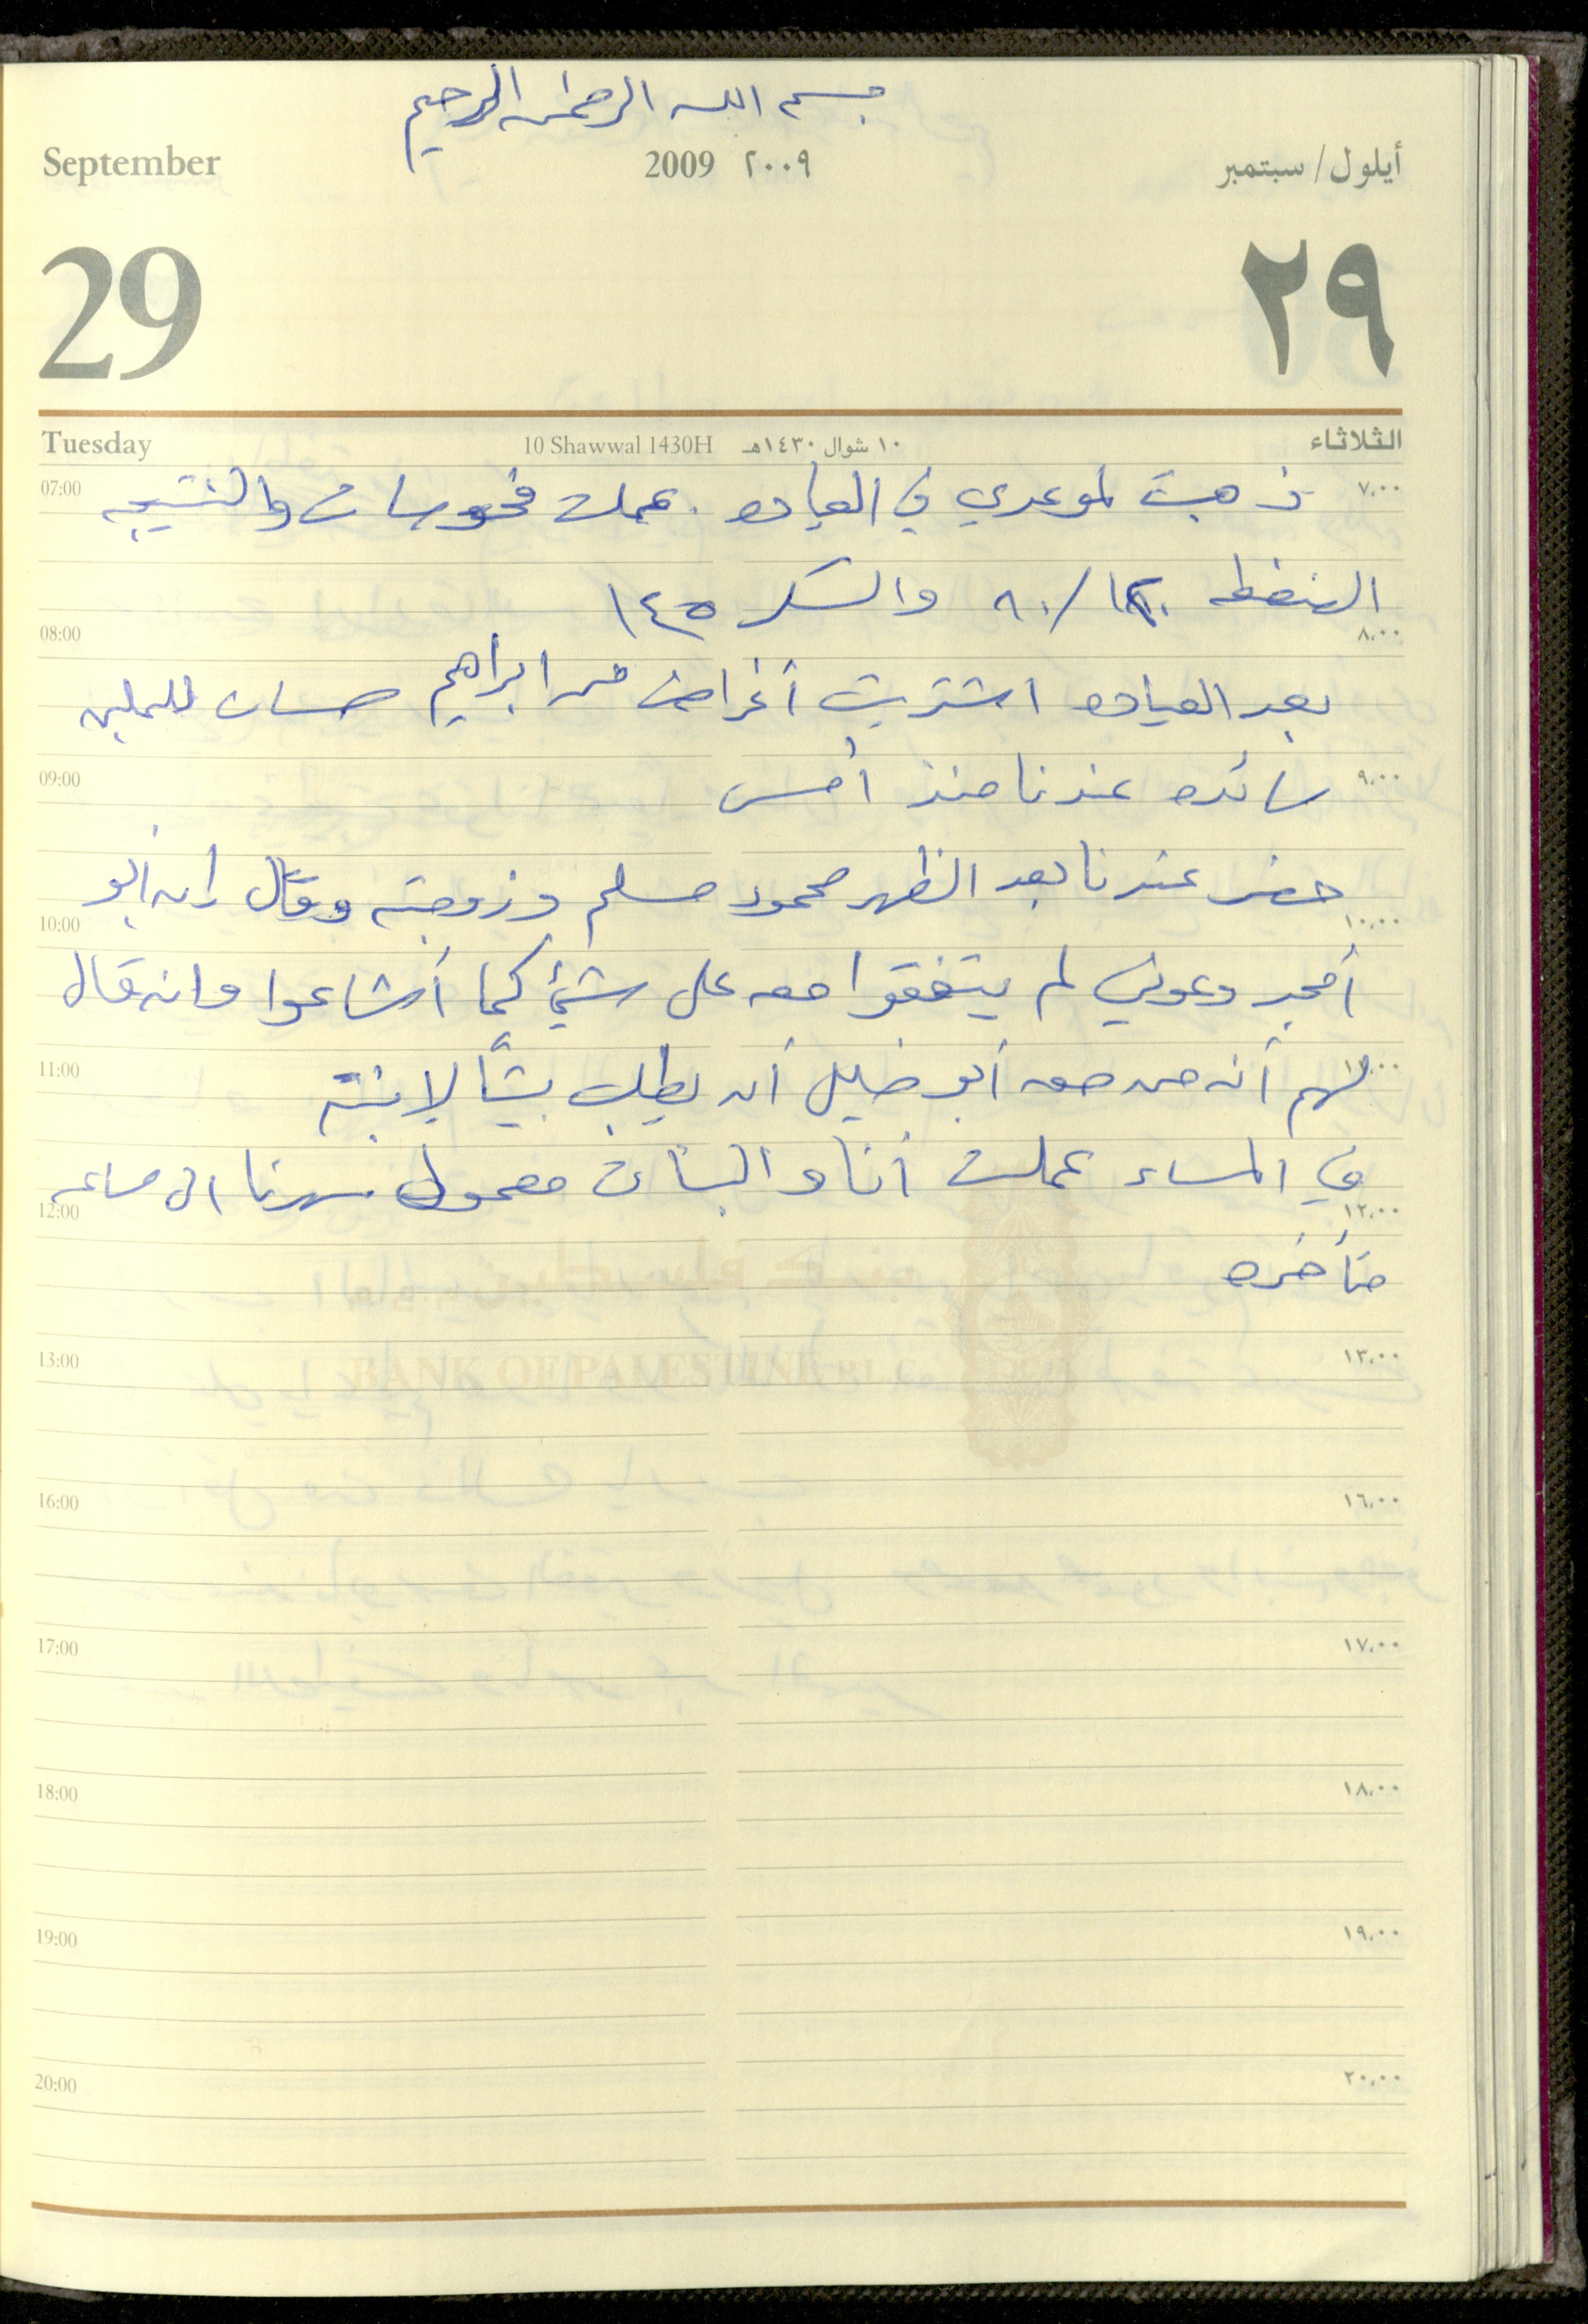 بسم الله الرحمن الرحيم
September 2009 ٢٠٠٩ أيلول/سبتمبر
29 ٢٩
Tuesday 10 Shawwal 1430H ١٠ شوال ١٤٣٠هـ الثلاثاء
07:00 ذهبت لموعدي في العياده . عملت فحوصات والنتيجه ٧،٠٠
الضغط ٨٠/١٢٠ والسكر ١٤٥
08:00 ٨،٠٠
بعد العياده اشتريت أغراض من ابراهيم حسان
09:00 رائده عندنا منذ أمس ٩،٠٠
حضر عندنا بعد الظهر محمود مسلم وزوجته وقال إن أبو
10:00 ١٠،٠٠
أمجد وعوني لم يتفقوا معه على شيء كما أشاعوا وانه قال
11:00 لهم أنه من حقه أبو خليل أن يطلب بيتًا لابنته ١١،٠٠
في المساء عملت أنا والبنات معمول سهرنا الى ساعه
12:00 ١٢،٠٠
متأخره
BANK OF PALESTINE PLC
13:00 ١٣،٠٠
16:00 ١٦،٠٠
17:00 ١٧،٠٠
18:00 ١٨،٠٠
19:00 ١٩،٠٠
20:00 ٢٠،٠٠